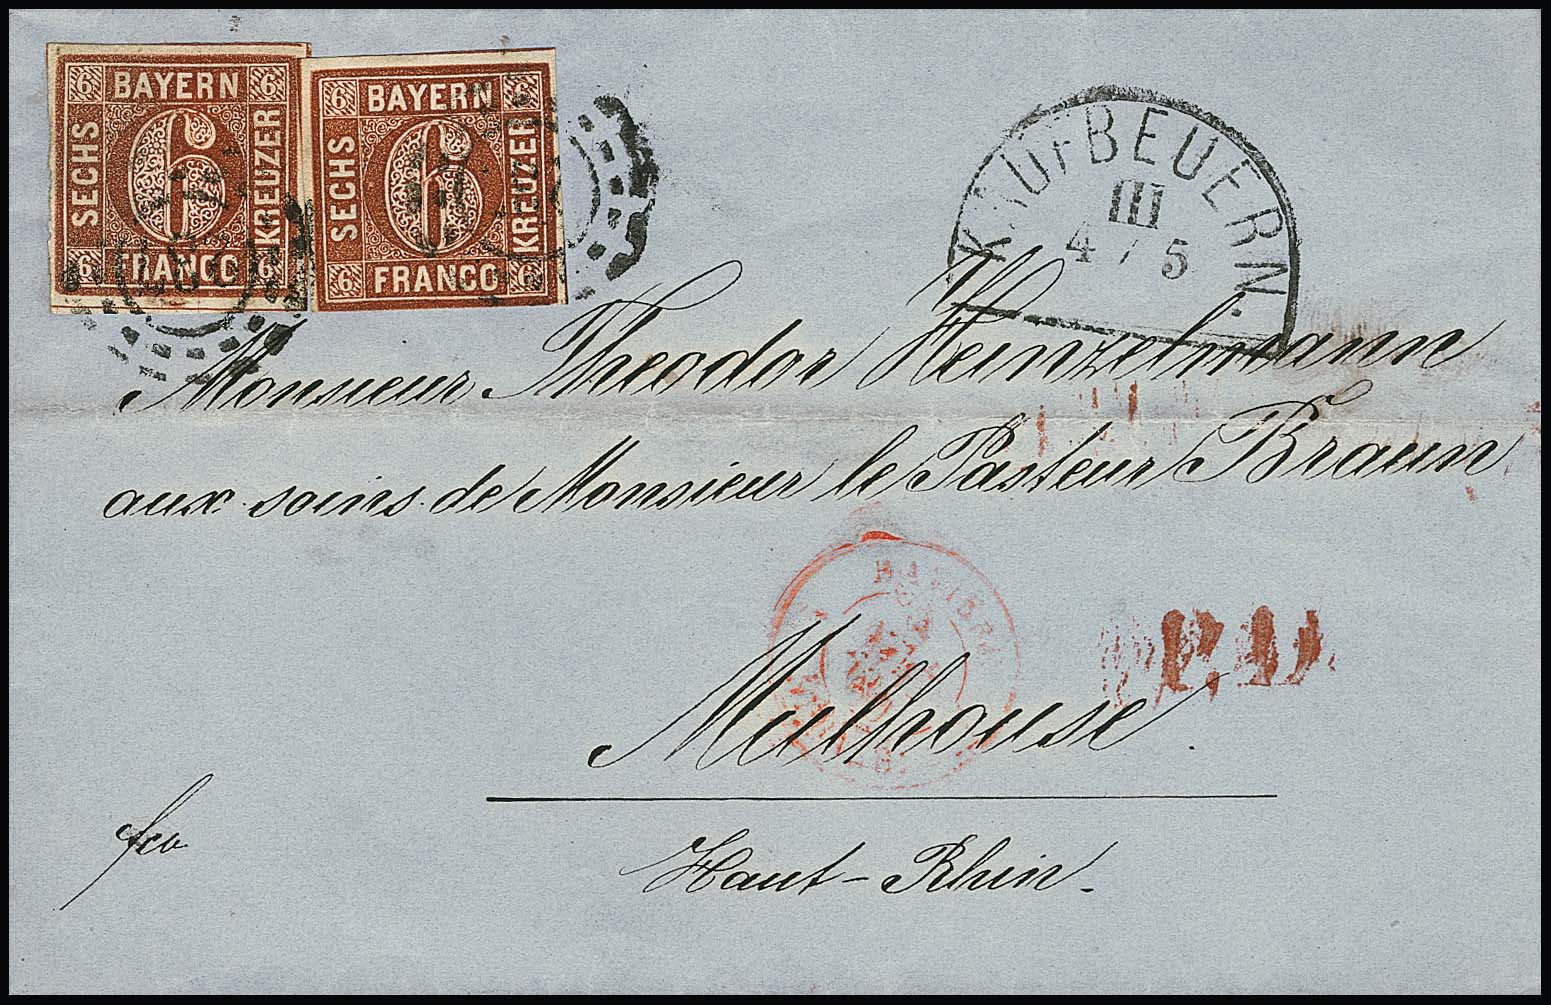 6 BAYERN 6
SECHS 6 KREUZER
6 FRANCO 6
6 BAYERN
SECHS 6 KREUZER
6 FRANCO 6
KAUFBEUERN.
III
4 / 5
Monsieur Theodor Heinzelmann
aux soins de Monsieur le Pasteur Braun
P.D.
Mulhouse.
fco
Haut-Rhin.